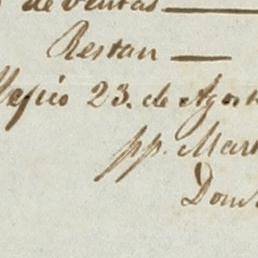 de ventas
Restan
Mejico 23. de Agost
pp. Mar
Dom